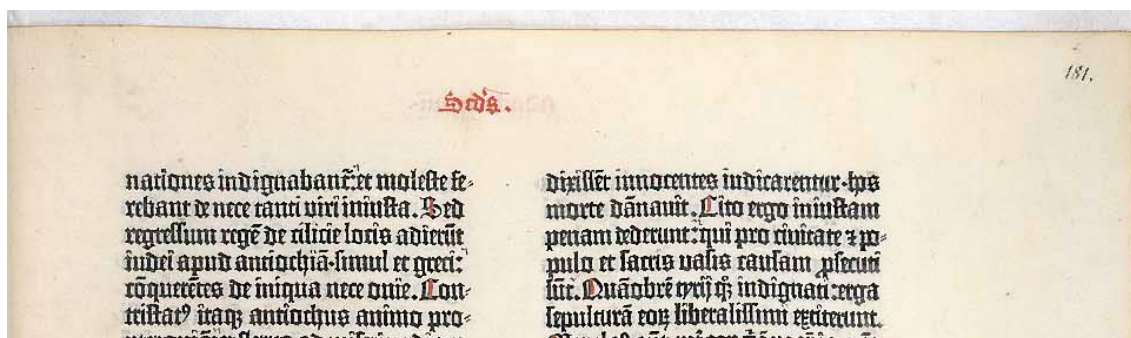 181.
Scds.
nationes indignabant᷑: et moleste fe-
rebant de nece tanti viri iniusta. Sed
regressum regē de cilicie locis adierūt
iudei apud antiochiā· simul et greci:
cōquerētes de iniqua nece onie. Con-
tristatꝰ itaqꝫ antiochus animo pro-
dixissēt innocentes iudicarentur· hos
morte dānauit. Cito ergo iniustam
penam dederunt: qui pro ciuitate ⁊ po-
pulo et sacris uasis causam ꝓsecuti
sūt. Quāobrē tyrij qꝫ indignati: erga
sepulturā eoꝝ liberalissimi extiterunt.